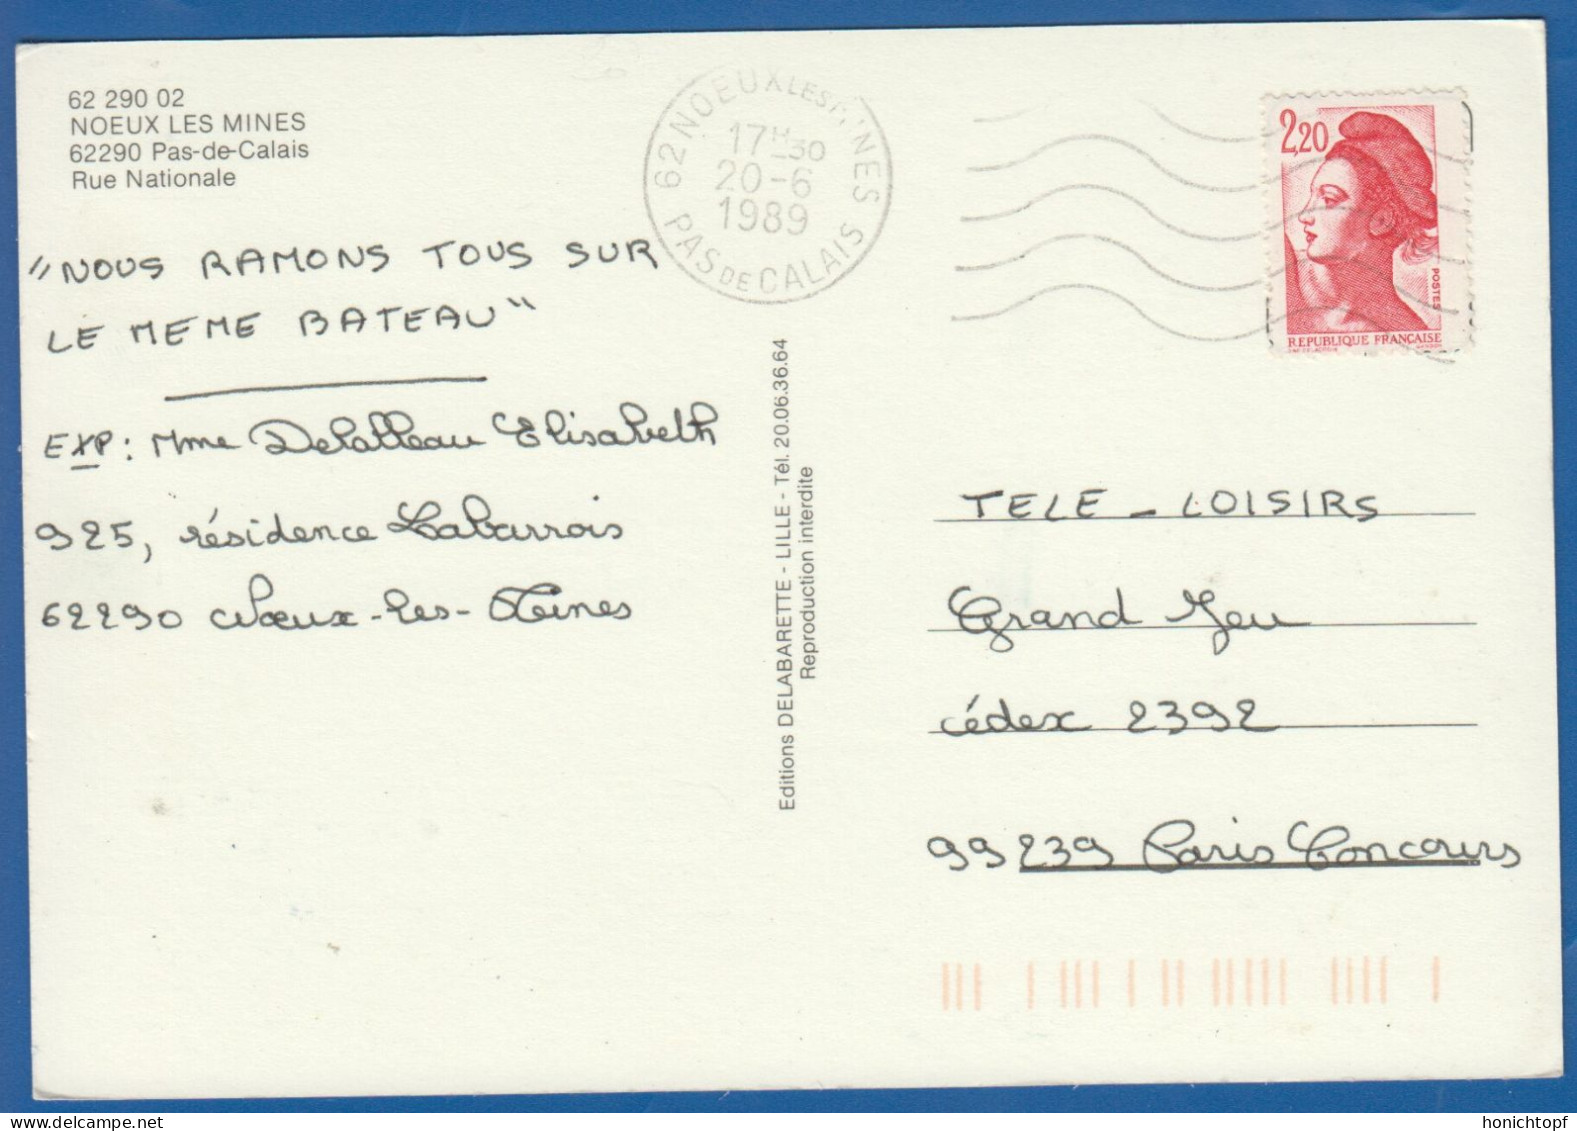 62 290 02
NOEUX LES MINES
62290 Pas-de-Calais
Rue Nationale
62 NOEUX LES MINES
17H30
20-6
1989
PAS DE CALAIS
2,20
POSTES
REPUBLIQUE FRANÇAISE
"NOUS RAMONS TOUS SUR
LE MEME BATEAU"
EXP: Mme Delalleau Elisabeth
925, résidence Labarrois
62290 Noeux-les-Mines
Editions DELABARETTE - LILLE - Tél. 20.06.36.64
Reproduction interdite
TELE-LOISIRS
Grand Jeu
cédex 2392
99239 Paris Concours
honichtopf